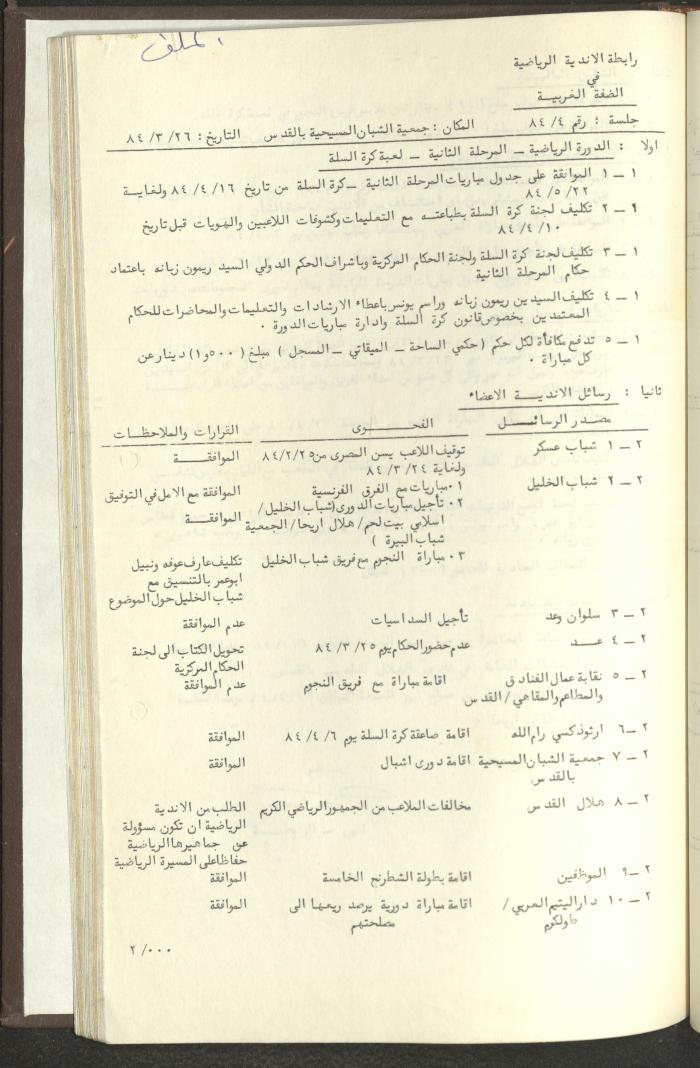 الملف
رابطة الاندية الرياضية
في
الضفة الغربيـة
جلسة : رقم ٨٤/٤ المكان : جمعية الشبان المسيحية بالقدس التاريخ : ٨٤/٣/٢٦
اولا : الدورة الرياضية ـ المرحلة الثانية ـ لعبة كرة السلة
١ ـ ١ الموافقة على جدول مباريات المرحلة الثانية ـ كرة السلة من تاريخ ٨٤/٤/١٦ ولغايـة
٨٤/٥/٢٢
١ ـ ٢ تكليف لجنة كرة السلة بطباعتـه مع التعليمات وكشوفات اللاعبين والهويات قبل تاريخ
٨٤/٤/١٠
١ ـ ٣ تكليف لجنة كرة السلة ولجنة الحكام المركزية وباشراف الحكم الدولي السيد ريمون زبانه باعتماد
حكام المرحلة الثانية
١ ـ ٤ تكليف السيدين ريمون زبانه وراسم يونس باعطاء الارشادات والتعليمات والمحاضرات للحكام
المعتمدين بخصوص قانون كرة السلة وادارة مباريات الدورة .
١ ـ ٥ تدفع مكافأة لكل حكم ( حكمي الساحة ـ الميقاتي ـ المسجل ) مبلغ ( ٥٠٠و١ ) دينار عن
كل مباراة .
ثانيا : رسائل الانديــة الاعضاء
مصـدر الرسائــل الفحــوى القرارات والملاحظـات
٢ ـ ١ شباب عسكر توقيف اللاعب يسن المصرى من ٨٤/٢/٢٥ الموافقــة
ولغاية ٨٤/٣/٢٤
٢ ـ ٢ شباب الخليل ١. مباريات مع الفرق الفرنسية الموافقة مع الامل في التوفيق
٢. تأجيل مباريات الدورى (شباب الخليل / الموافقــة
اسلامي بيت لحم / هلال اريحا / الجمعية
شباب البيرة )
٣. مباراة النجوم مع فريق شباب الخليل تكليف عارف عوفه ونبيل
ابوعمر بالتنسيق مع
شباب الخليل حول الموضوع
٢ ـ ٣ سلوان وعد تأجيل السداسيات عدم الموافقة
٢ ـ ٤ عـــد عدم حضور الحكام يوم ٨٤/٣/٢٥ تحويل الكتاب الى لجنة
الحكام المركزية
٢ ـ ٥ نقابة عمال الفنادق اقامة مباراة مع فريق النجوم عدم الموافقة
والمطاعم والمقاهي / القدس
٢ ـ ٦ ارثوذكسي رام الله اقامة صاعقة كرة السلة يوم ٨٤/٤/٦ الموافقة
٢ ـ ٧ جمعية الشبان المسيحية اقامة دورى اشبال الموافقة
بالقدس
٢ ـ ٨ هلال القدس مخالفات الملاعب من الجمهور الرياضي الكريم الطلب من الاندية
الرياضية ان تكون مسؤولة
عن جماهيرها الرياضية
حفاظا على المسيرة الرياضية
٢ ـ ٩ الموظفين اقامة بطولة الشطرنج الخامسة الموافقة
٢ ـ ١٠ دار اليتيم العربي / اقامة مباراة دورية يرصد ريعها الى الموافقة
طولكرم مصلحتهم
٢/٠٠٠